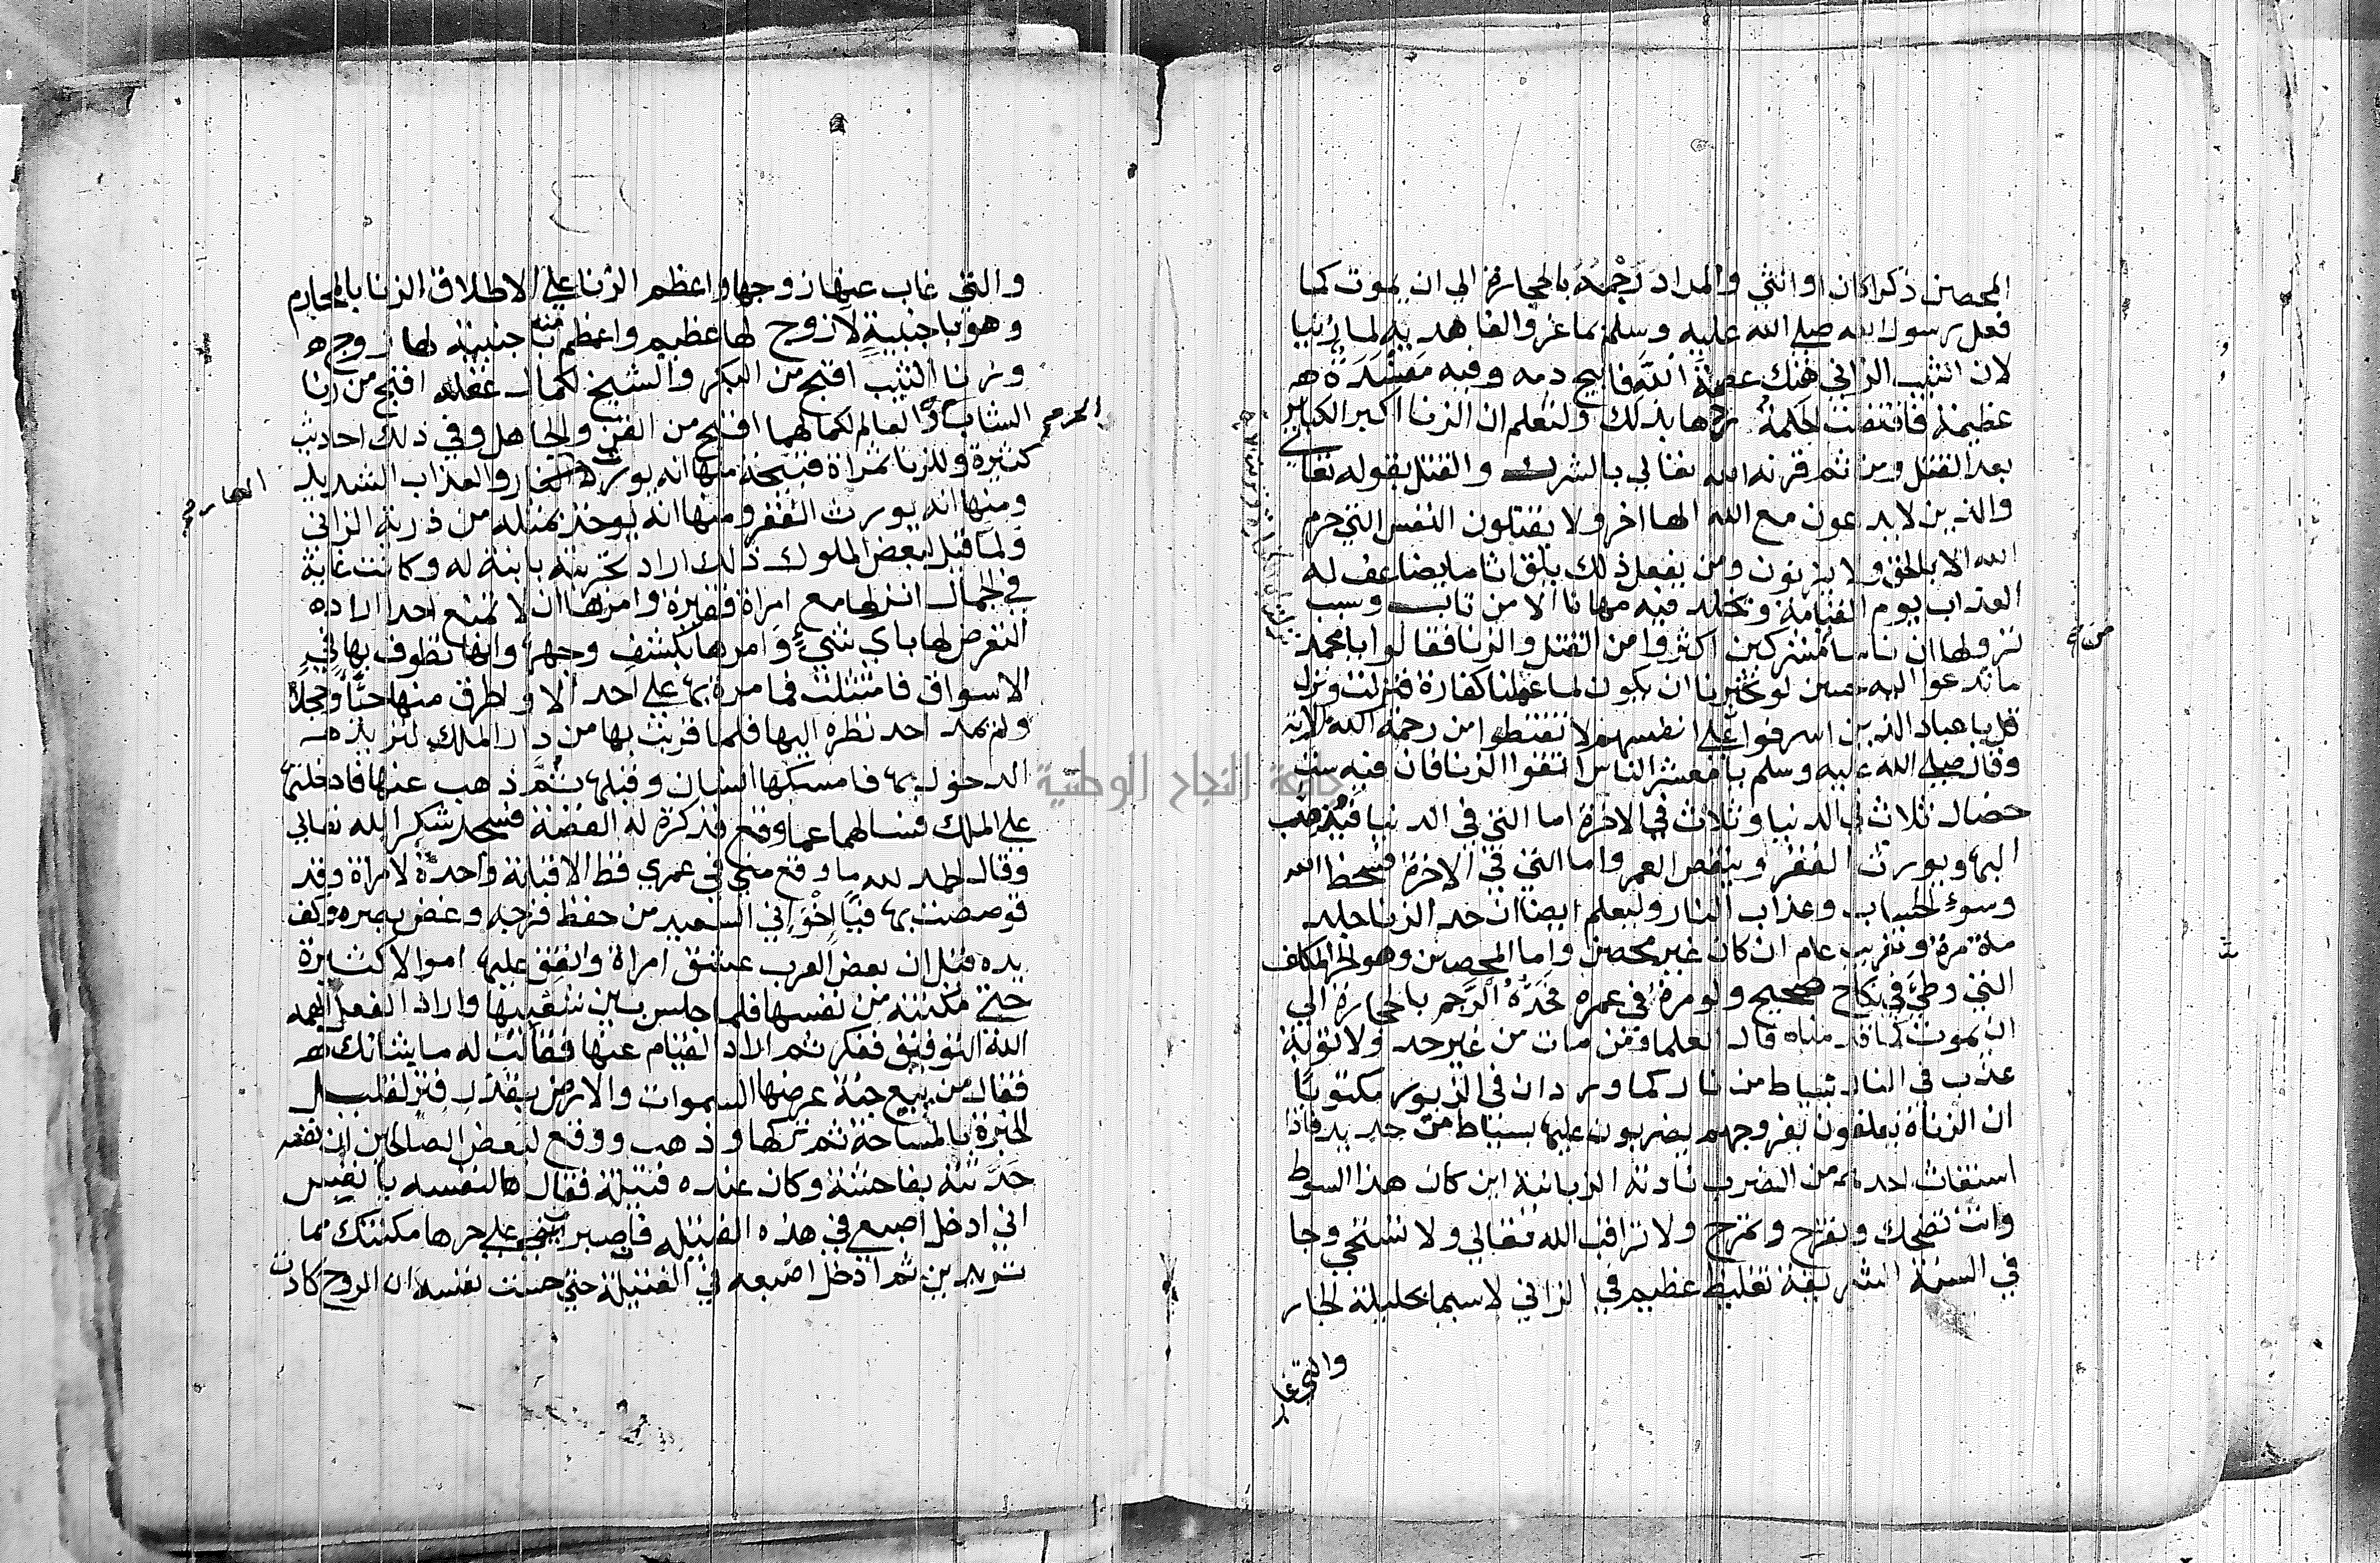 المحصن ذكرا كان او انثي والمراد رَجْمُهُ بالحجارة الي ان يموت كما
فعل رسول الله صلي الله عليه وسلم بماعز والغامدية لما زنيا
لان الثيب الزاني هتك عصمة الله فابيح دمه وفيه مَفْسَدَةٌ
عظيمة فاقتضت حكمة بذلك ولتعلم ان الزنا اكبر الكباير
بعد القتل ومن ثم قرنه الله تعالي بالشرك والقتل بقوله تعالي
والذين لا يدعون مع الله الها اخر ولا يقتلون النفس التي حرم
الله الا بالحق ولا يزنون ومن يفعل ذلك يلق اثاما يضاعف له
العذاب يوم القيامة ويخلد فيه مهانا الا من تاب وسبب
نزولها ان ناسا مشركين اكثروا من القتل والزنا فقالوا يا محمد
من
ما تدعوا اليه حسن لو تخبرنا ان يكون لما عملنا كفارة فنزلت ونزل
قل يا عباد الذين اسرفوا علي انفسهم لا تقنطوا من رحمة الله الاية
وقال صلي الله عليه وسلم يا معشر الناس اتقوا الزنا فان فيه ست
خصال ثلاث في الدنيا وثلاث في الاخرة اما التي في الدنيا فيذهب
البها ويورث الفقر وينقص العمر واما التي في الاخرة فسخط الله
وسوء الحساب وعذاب النار وليعلم ايضا ان حد الزنا جلد
ماة مرة وتغريب عام ان كان غير محصن واما المحصن وهو الحر المكلف
التي وطئ في نكاح صحيح ولو مرة في عمره فحَدُّهُ الرَّجم بالحجارة الي
ان يموت كما قدمناه قال العلما ومن مات من غير حد ولا توبة
عذب في النار بسياط من نار كما ورد ان في الزبور مكتوبًا
ان الزناة يعلقون بفروجهم يضربون عليها بسياط من حديد فاذا
استغاث احدهم من الضرب نادته الزبانية اين كان هذا السوط
وانت تضحك وتفرح وتمرح ولا تراقب الله تعالي ولا تستحي وجا
في السنة الشريفة تغليظ عظيم في الزاني لا سيما بحليلة الجار
والتي غا
والتي غاب عنها زوجها واعظم الزنا علي الاطلاق الزنا بالمحارم
وهو باجنبيةٍ لا زوج لها عظيم واعظم منه باجنبية لها زوج
وزنا الثيب اقبح من البكر والشيخ لكمال عقله اقبح من زنا
الشاب والعالم لكمالهما اقبح من القن والجاهل وفي ذلك احاديث
الحر
كثيرة وللزنا ثمراة قبيحة منها انه يورث النار والعذاب الشديد
ومنها انه يورث الفقر ومنها انه يوخذ بمثله من ذرية الزاني
ولما قيل لبعض الملوك ذلك اراد تجربته بابنة له وكانت غاية
في الجمال انزلها مع امراة فقيرة وامرها ان لا تمنع احدا اراده
التعرض لها باي شيءٍ وامرها بكشف وجهها وانها تطوف بها في
الاسواق فامتثلت فما مرة بها علي احد الا واطرق منها حيًّا وخجلا
ولم يمد احد نظره اليها فلما قربت بها من دار الملك لتريد
الدخول بها فامسكها انسان وقبلها ثم ذهب عنها فادخلتها
علي الملك فسالهما عما وقع فذكرة له القصة فسجد شكرا لله تعالي
وقال الحمد لله ما وقع مني في عمري قط الا قبلة واحدة لامراة وقد
قوصصت بها فيا اخواني السعيد من حفظ فرجه وغض بصره وكف
يده قيل ان بعض العرب عشق امراة وانفق عليها اموالا كثيرة
حتي مكنته من نفسها فلما جلس بين شقيها واراد الفعل الهمه
الله التوفيق ففكر ثم اراد القيام عنها فقالت له ما شانك
فقال من يبيع جنة عرضها السموات والارض بقدر فتر لقليل
الخبرة بالمساحة ثم تركها وذهب ووقع لبعض الصالحين ان نفسه
حَدَّثته بفاحشة وكان عنده فتيلة فقال لنفسه يا نفس
اني ادخل اصبعي في هذه الفتيلة فان صبرتي علي حرها مكنتك مما
تريدين ثم ادخل اصبعه في الفتيلة حتي حست نفسه ان الروح كادت
جامعة النجاح الوطنية